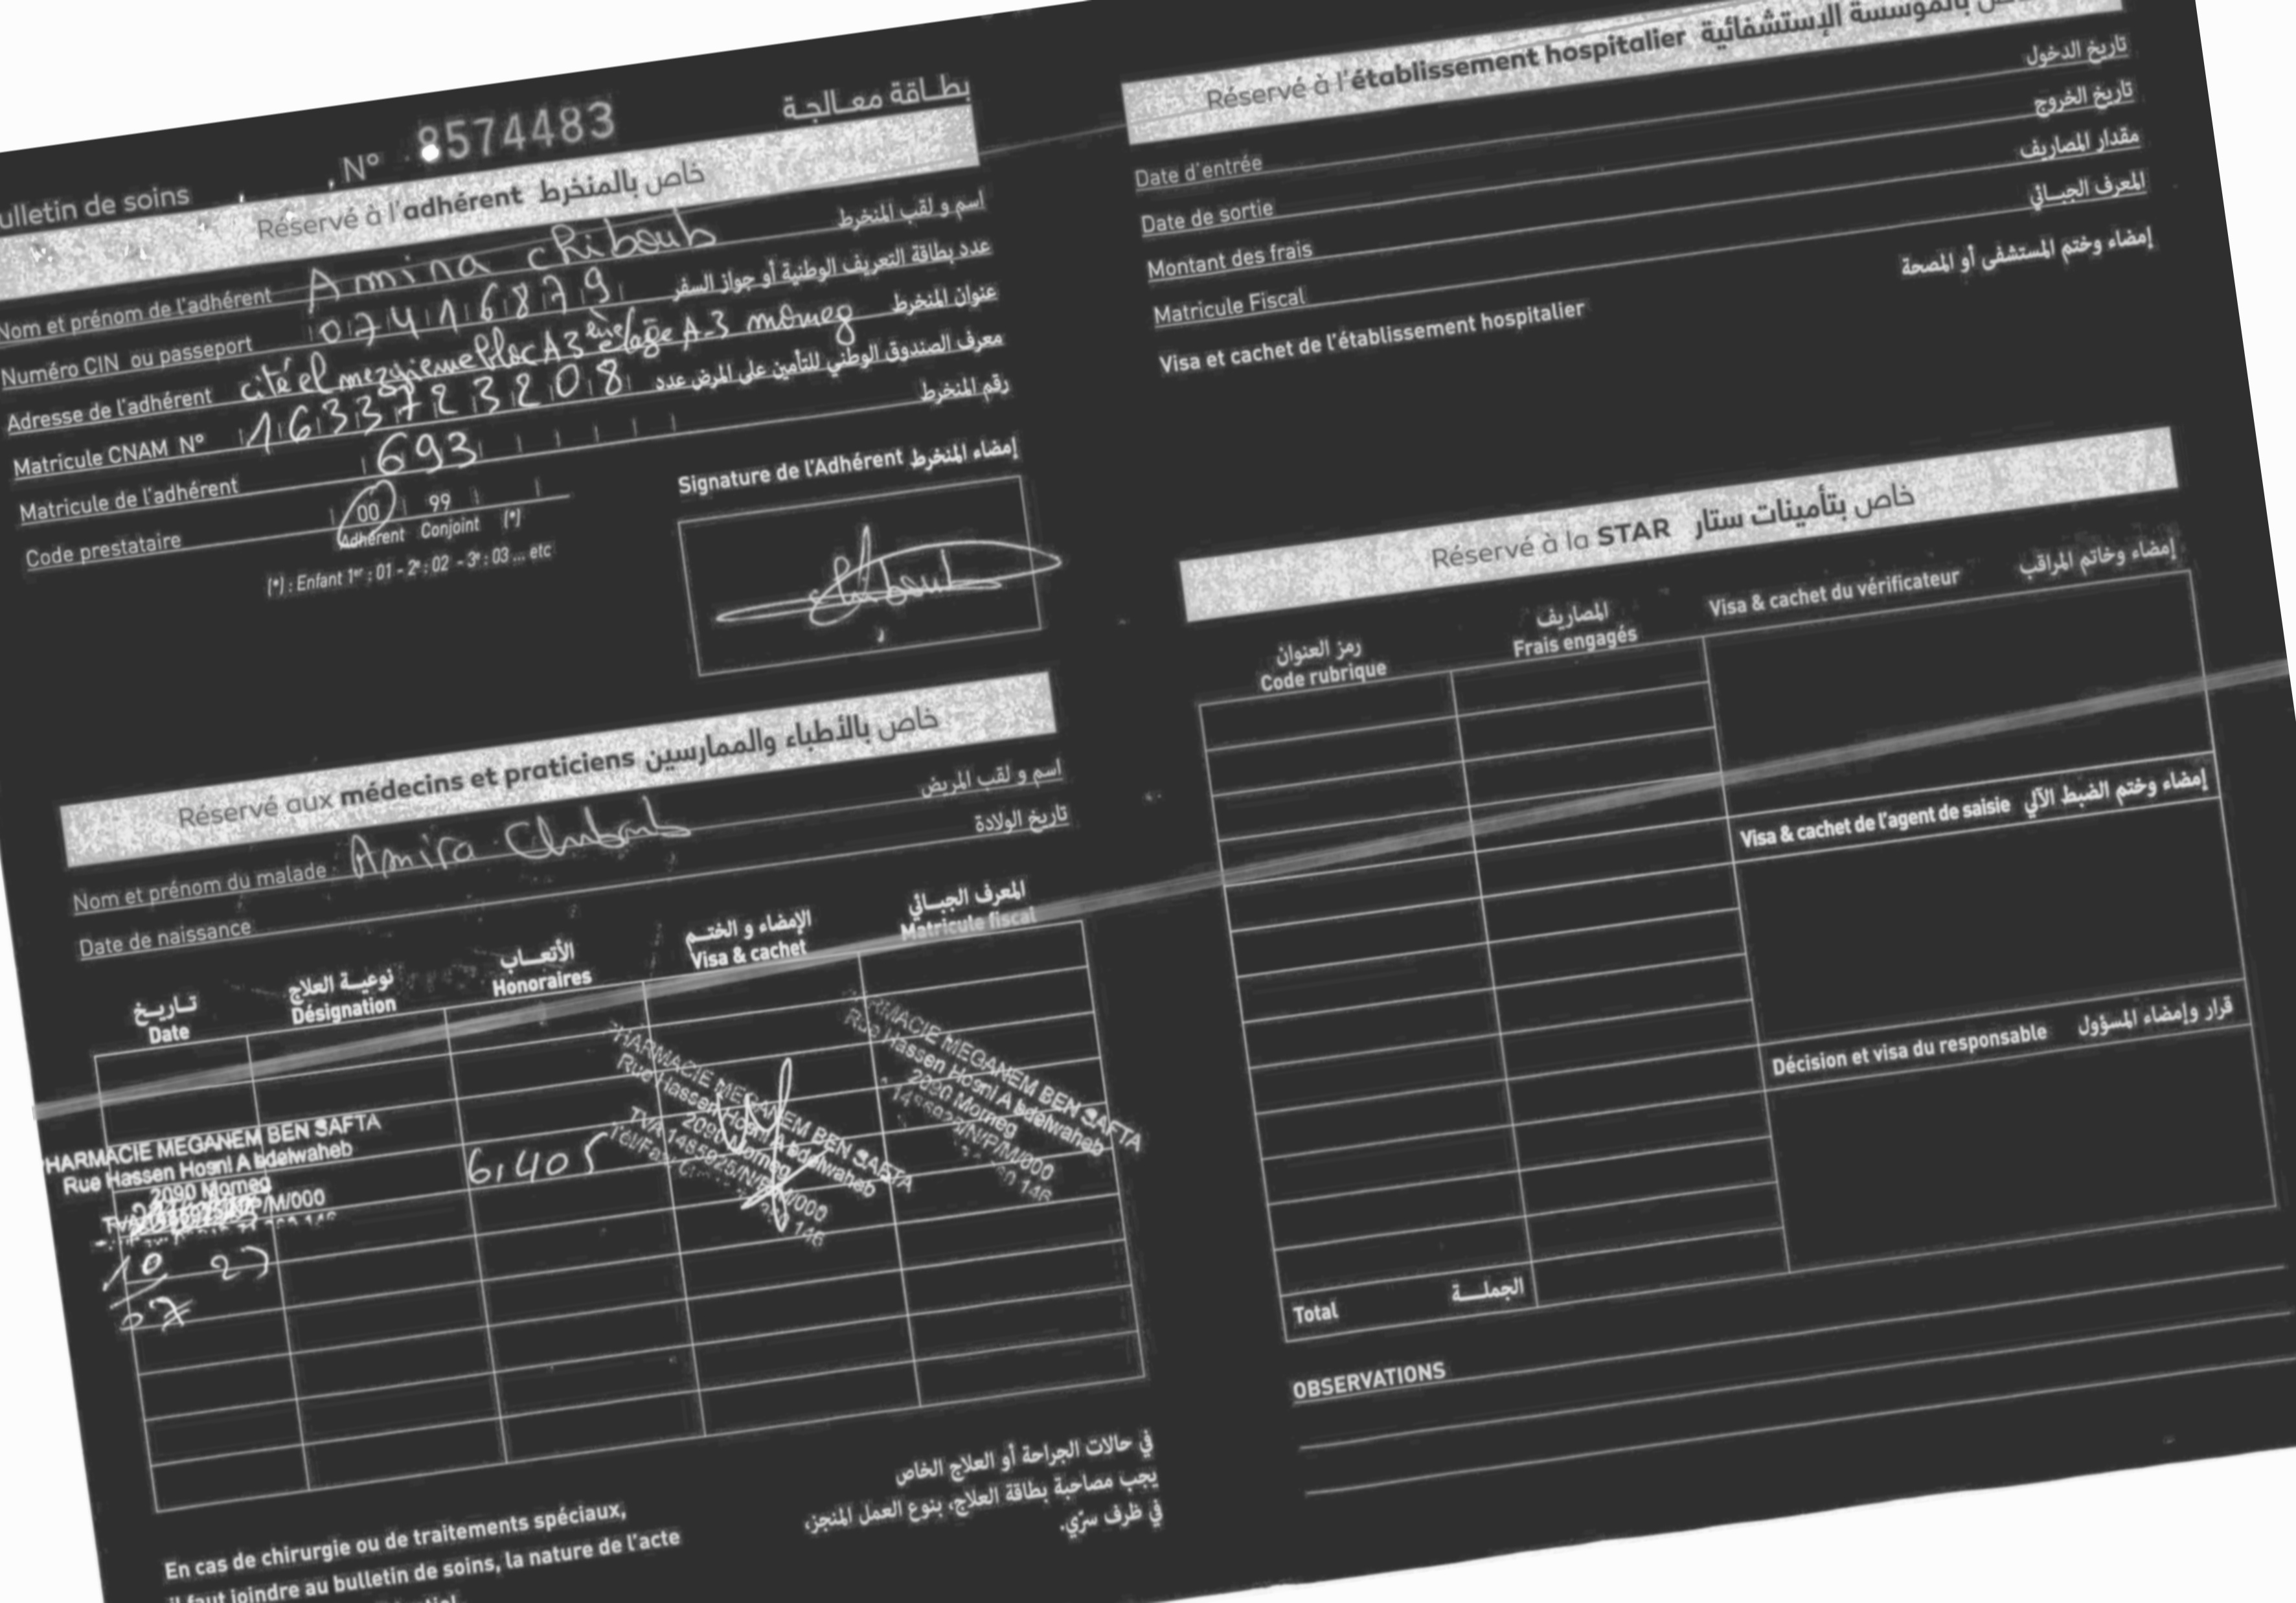 بطـاقة معـالجـة
ulletin de soins N° 8574483
Réservé à l'adhérent خاص بالمنخرط
Nom et prénom de l'adhérent Amina chiboub اسم و لقب المنخرط
Numéro CIN ou passeport 07416879 عدد بطاقة التعريف الوطنية أو جواز السفر
Adresse de l'adhérent cité el mezyieme bloc A 3 ème étage A-3 morneg عنوان المنخرط
Matricule CNAM N° 1633723208 معرف الصندوق الوطني للتأمين على المرض عدد
Matricule de l'adhérent 693 رقم المنخرط
Code prestataire 00 99
Adhérent Conjoint (*)
(*) : Enfant 1er : 01 - 2e : 02 - 3e : 03 ... etc
Signature de l'Adhérent إمضاء المنخرط
Chiboub
Réservé aux médecins et praticiens خاص بالأطباء والممارسين
Nom et prénom du malade Amira Chiboub اسم و لقب المريض
Date de naissance تاريخ الولادة
تـاريـخ نوعيـة العلاج الأتعـاب الإمضاء و الختـم المعرف الجبـائي
Date Désignation Honoraires Visa & cachet Matricule fiscal
PHARMACIE MEGANEM BEN SAFTA
Rue Hassen Hosni Abdelwaheb
2090 Morneg
10 23
07
6,405
PHARMACIE MEGANEM BEN SAFTA
Rue Hassen Hosni Abdelwaheb
2090 Morneg
TVA 1485925/N/P/M/000
RMACIE MEGANEM BEN SAFTA
Rue Hassen Hosni Abdelwaheb
2090 Morneg
En cas de chirurgie ou de traitements spéciaux,
il faut joindre au bulletin de soins, la nature de l'acte
في حالات الجراحة أو العلاج الخاص
يجب مصاحبة بطاقة العلاج، بنوع العمل المنجز،
في ظرف سرّي.
Réservé à l'établissement hospitalier خاص بالمؤسسة الإستشفائية
Date d'entrée تاريخ الدخول
Date de sortie تاريخ الخروج
Montant des frais مقدار المصاريف
Matricule Fiscal المعرف الجبـائي
Visa et cachet de l'établissement hospitalier إمضاء وختم المستشفى أو المصحة
Réservé à la STAR خاص بتأمينات ستار
رمز العنوان المصاريف
Code rubrique Frais engagés
Visa & cachet du vérificateur إمضاء وخاتم المراقب
Visa & cachet de l'agent de saisie إمضاء وختم الضبط الآلي
Décision et visa du responsable قرار وإمضاء المسؤول
Total الجملـــة
OBSERVATIONS